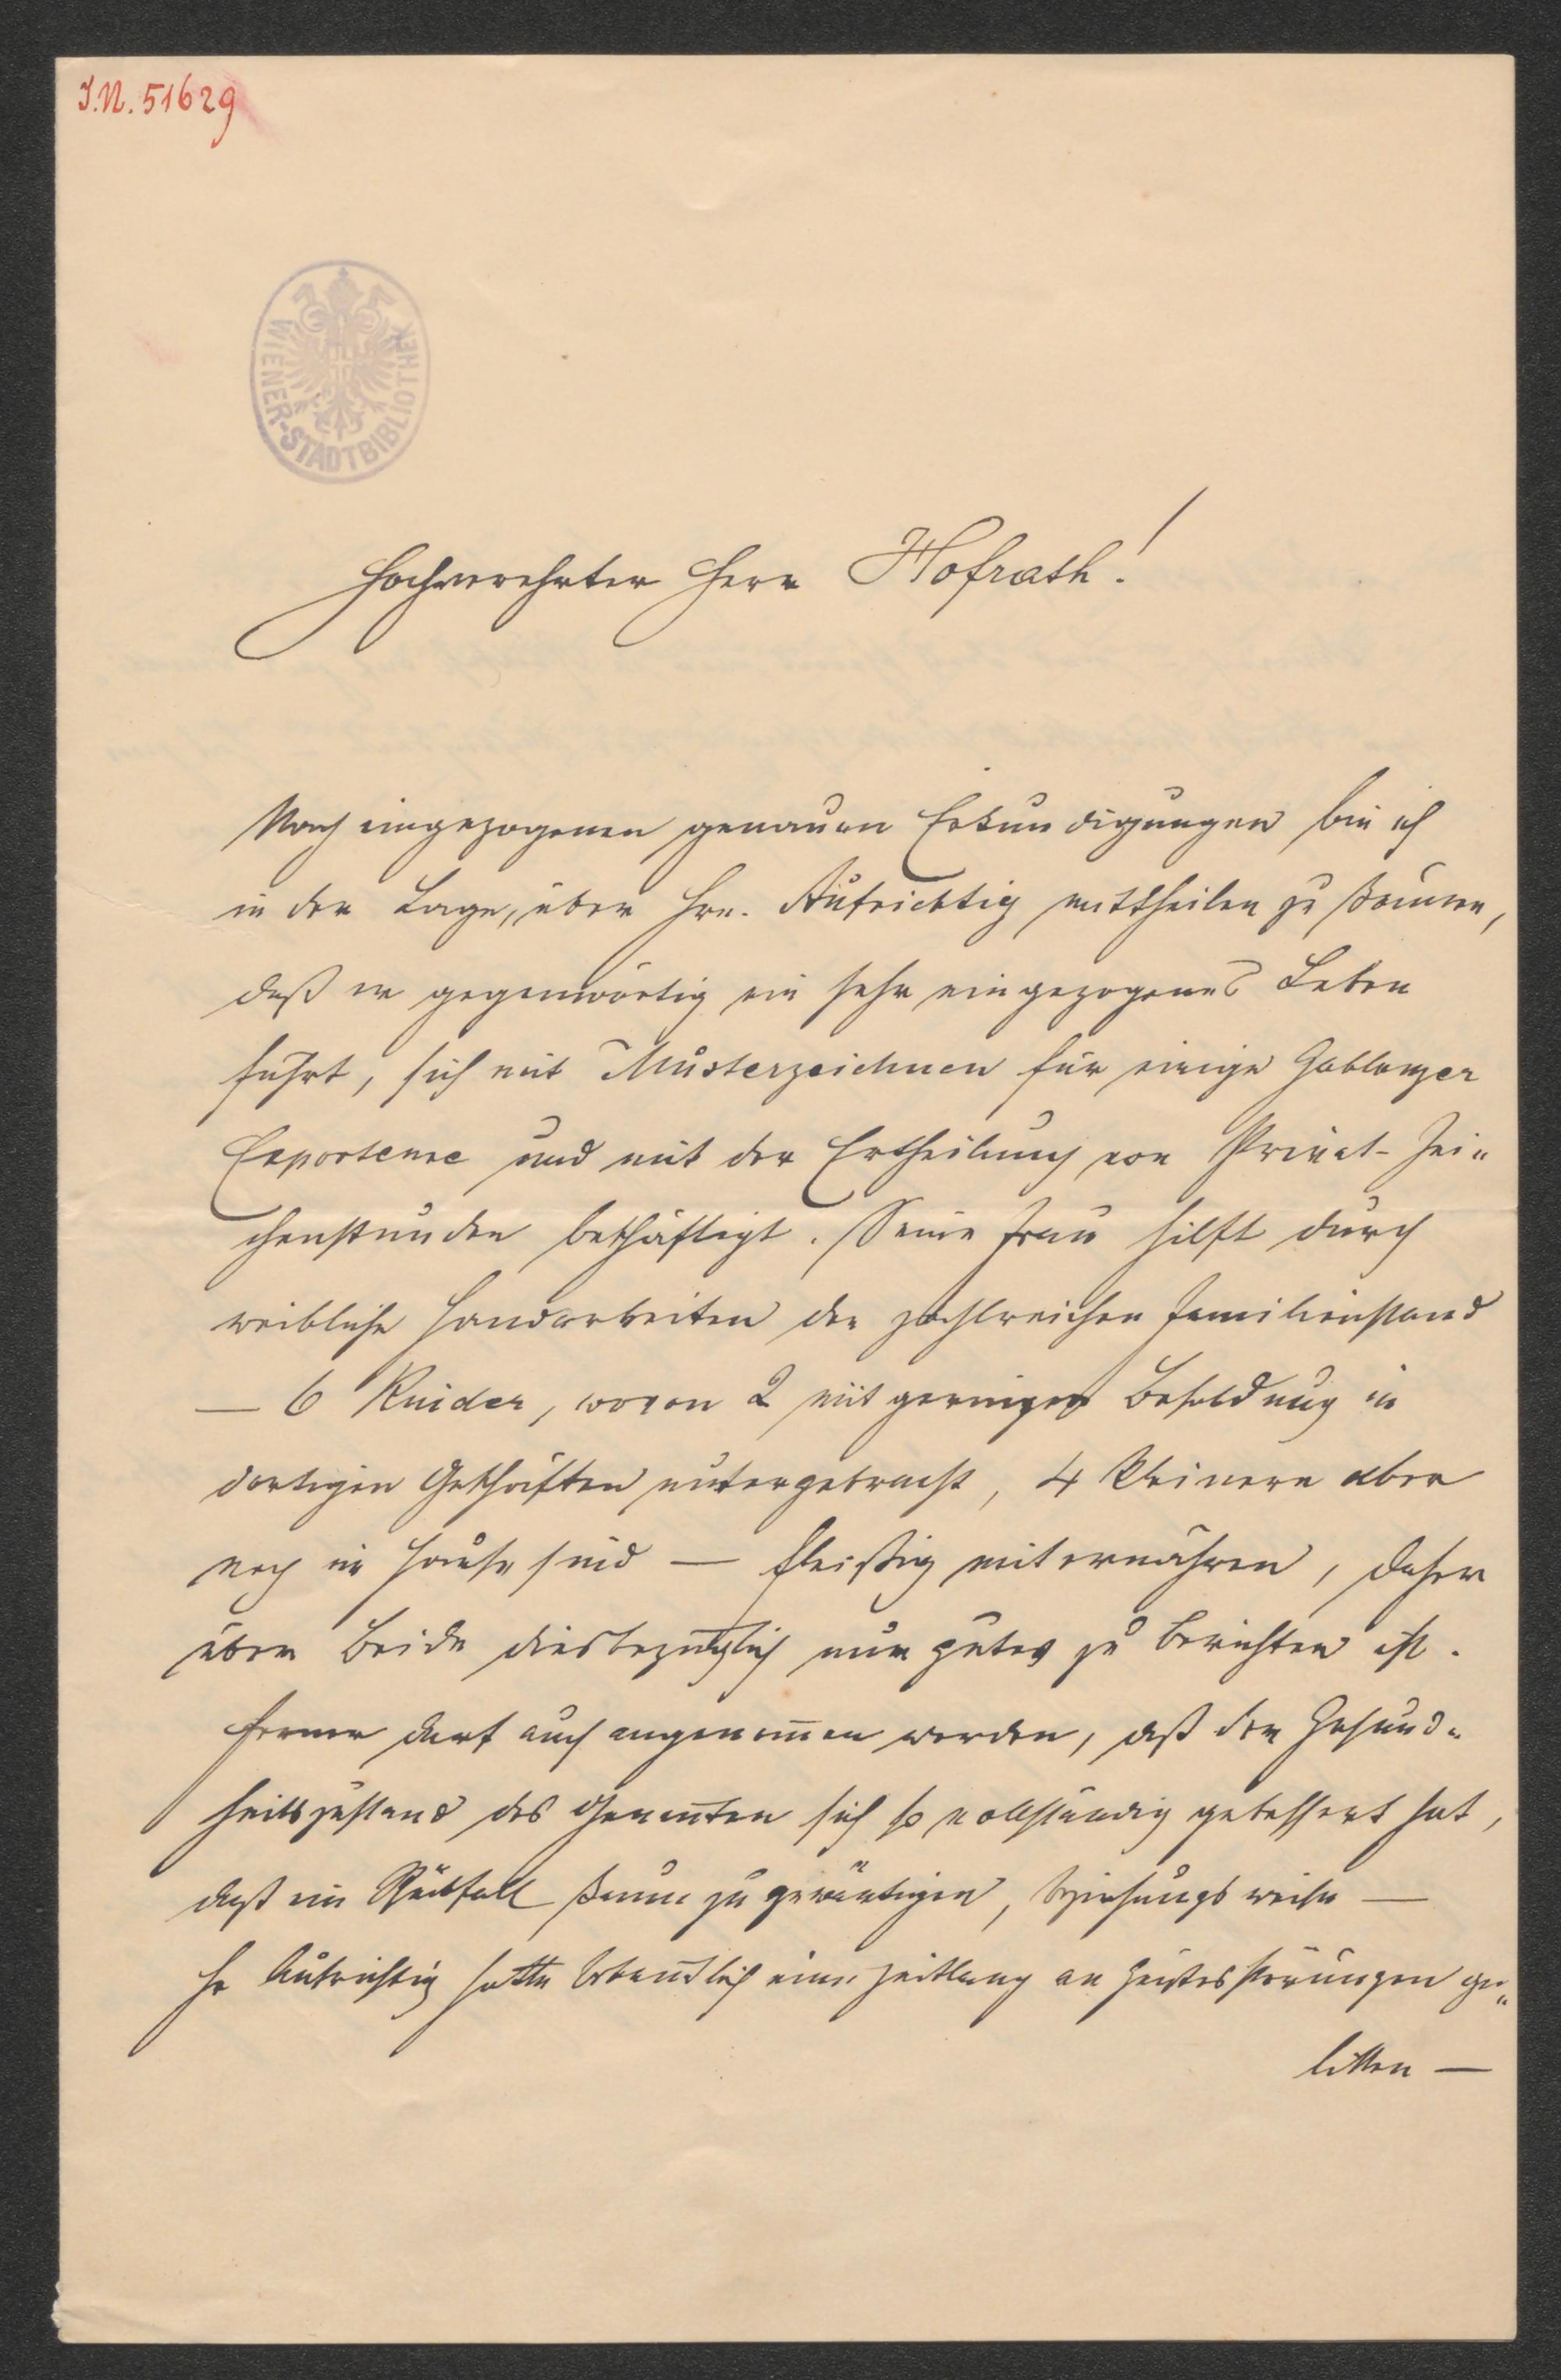 I.N. 51629
WIENER-STADTBIBLIOTHEK
Hochverehrter Herr Hofrath!
Nach eingezogenen genauen Erkundigungen bin ich
in der Lage, über Hrn. Aufrichtig mittheilen zu können,
daß er gegenwärtig ein sehr eingezogenes Leben
führt, sich mit Musterzeichnen für einige Gablonzer
Exporteure und mit der Ertheilung von Privat-Zei-
chenstunden beschäftigt. Seine Frau hilft durch
weibliche Handarbeiten den zahlreichen Familienstand
— 6 Kinder, wovon 2 mit geringer Besoldung in
dortigen Geschäften untergebracht, 4 kleinere aber
noch im Hause sind — fleißig mit ernähren, daher
über Beide diesbezüglich nur gutes zu berichten ist.
Ferner darf auch angenommen werden, daß der Gesund-
heitszustand des Genannten sich so vollständig gebessert hat,
daß ein Rückfall kaum zu gewärtigen, beziehungsweise —
Hr Aufrichtig hatte bekanntlich eine Zeitlang an Geistesstörungen ge-
litten —